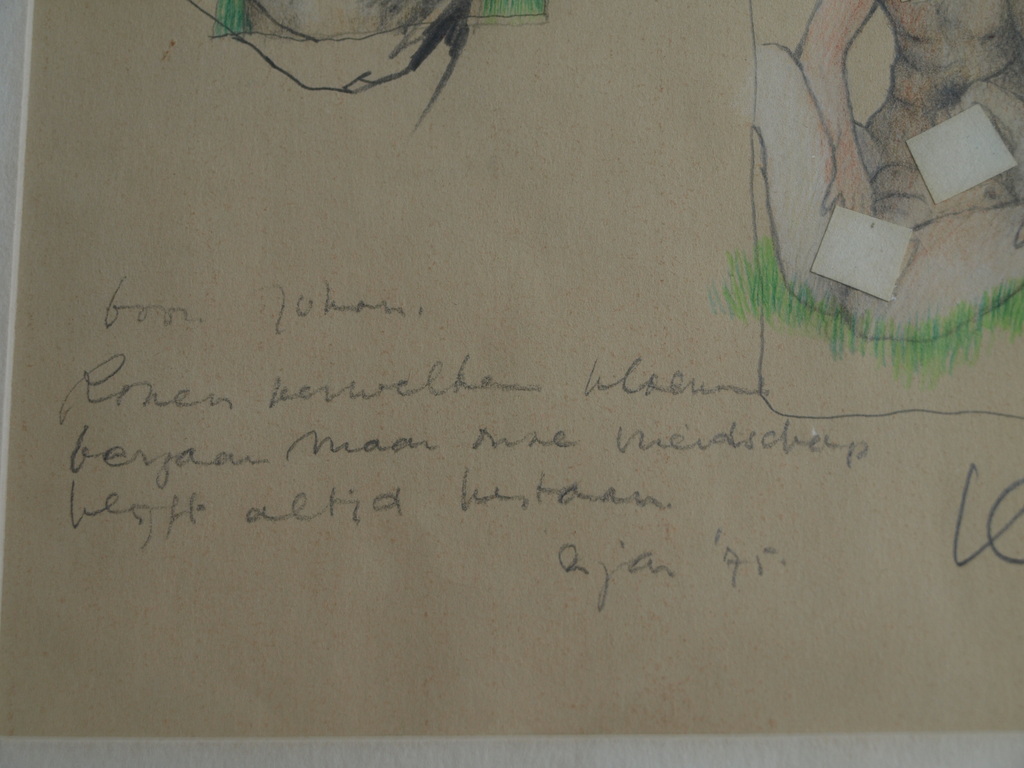 voor Johan.
Rozen verwelken bloemen
vergaan maar onze vriendschap
blijft altijd bestaan.
jan '75.